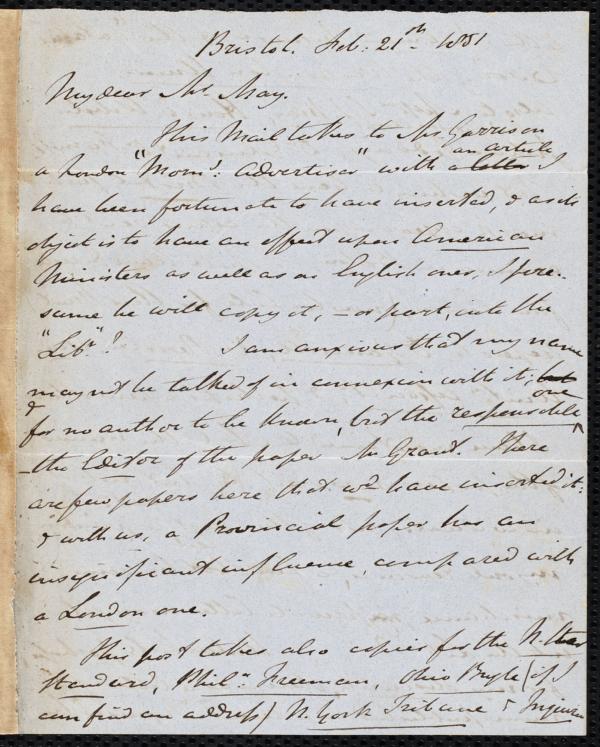 Bristol. Feb: 21st. 1851
My dear Mr. May.
This Mail takes to Mr Garrison
an article
a London "Morng: Advertiser" with a letter I
have been fortunate to have inserted, & as its
object is to have an effect upon American
Ministers as well as on English ones, I pre-
sume he will copy it, – or part, into the
"Libr"! I am anxious that my name
may not be talked of in connexion with it, but
& for no author to be known, but the responsible one
– the Editor of the paper Mr Grant. There
are few papers here that wd have inserted it:
& with us, a Provincial paper has an
insignificant influence, compared with
a London one.
This post takes also copies for the N. Star
Standard, Phila. Freeman, Ohio Bugle (if I
can find an address) N. York Tribune &